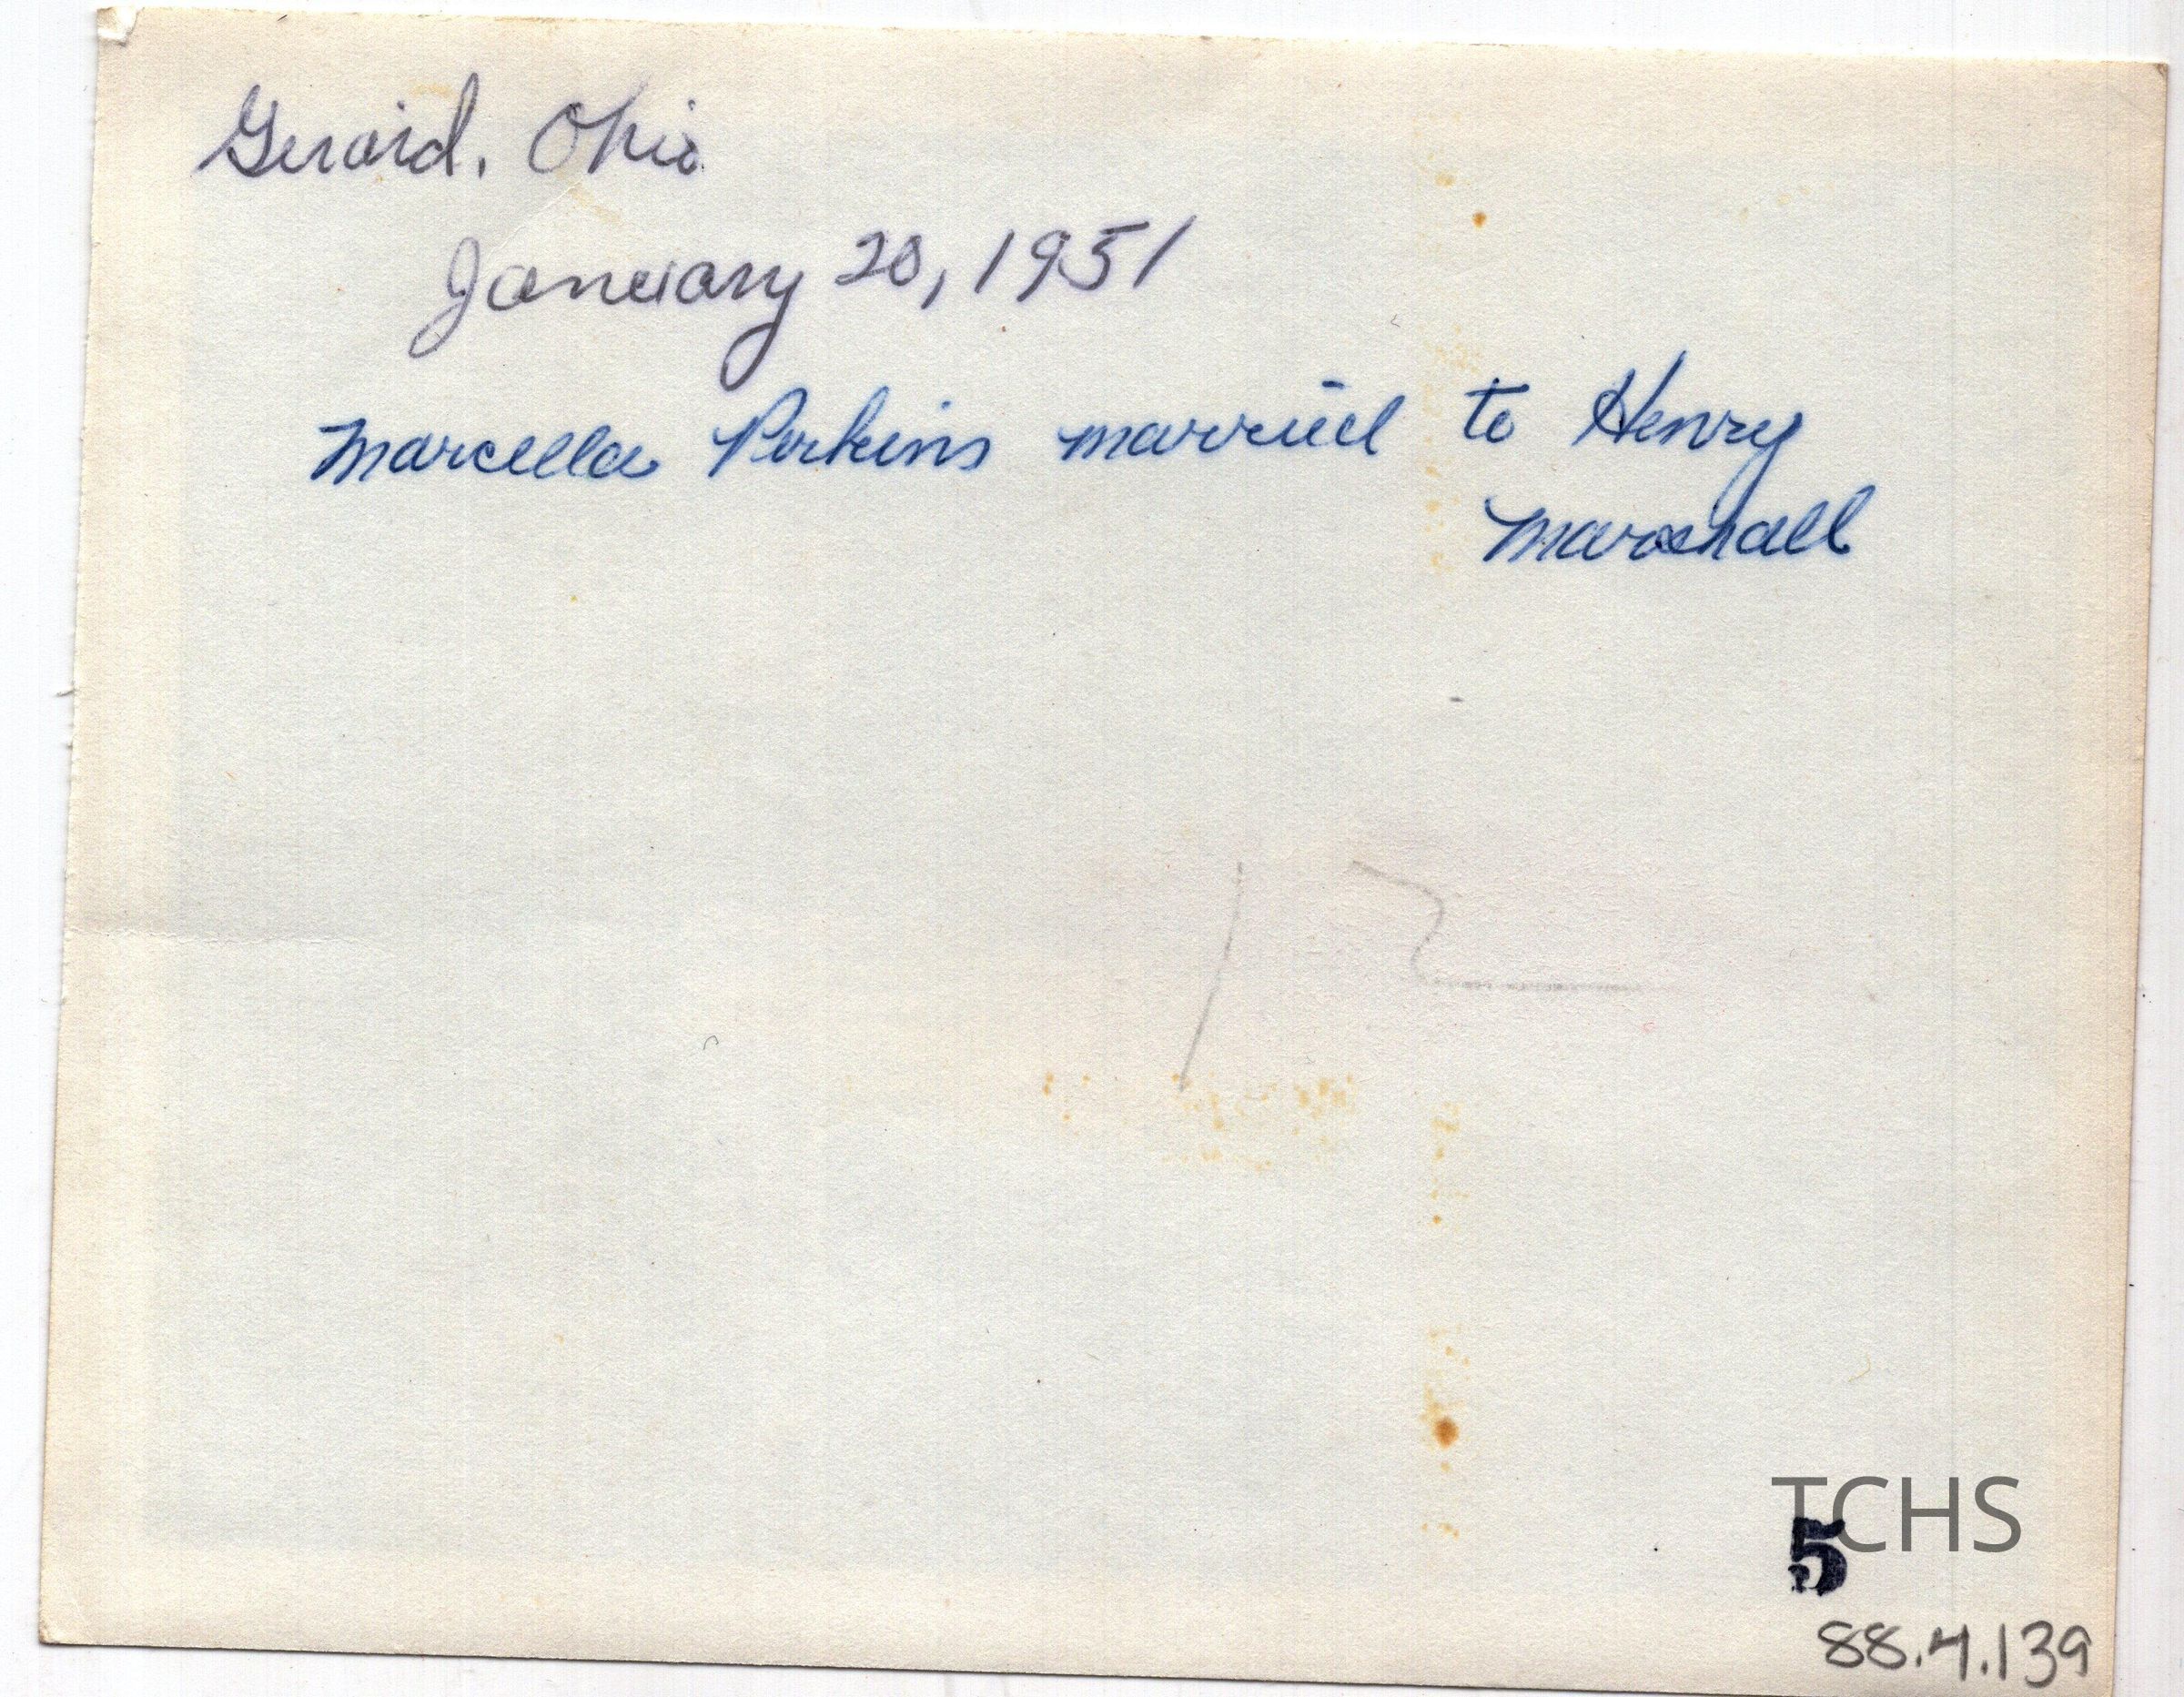 Geraird, Ohio
January 20, 1951
Marcella Perkins married to Henry
Marshall
12
TCHS
5
88.4.139